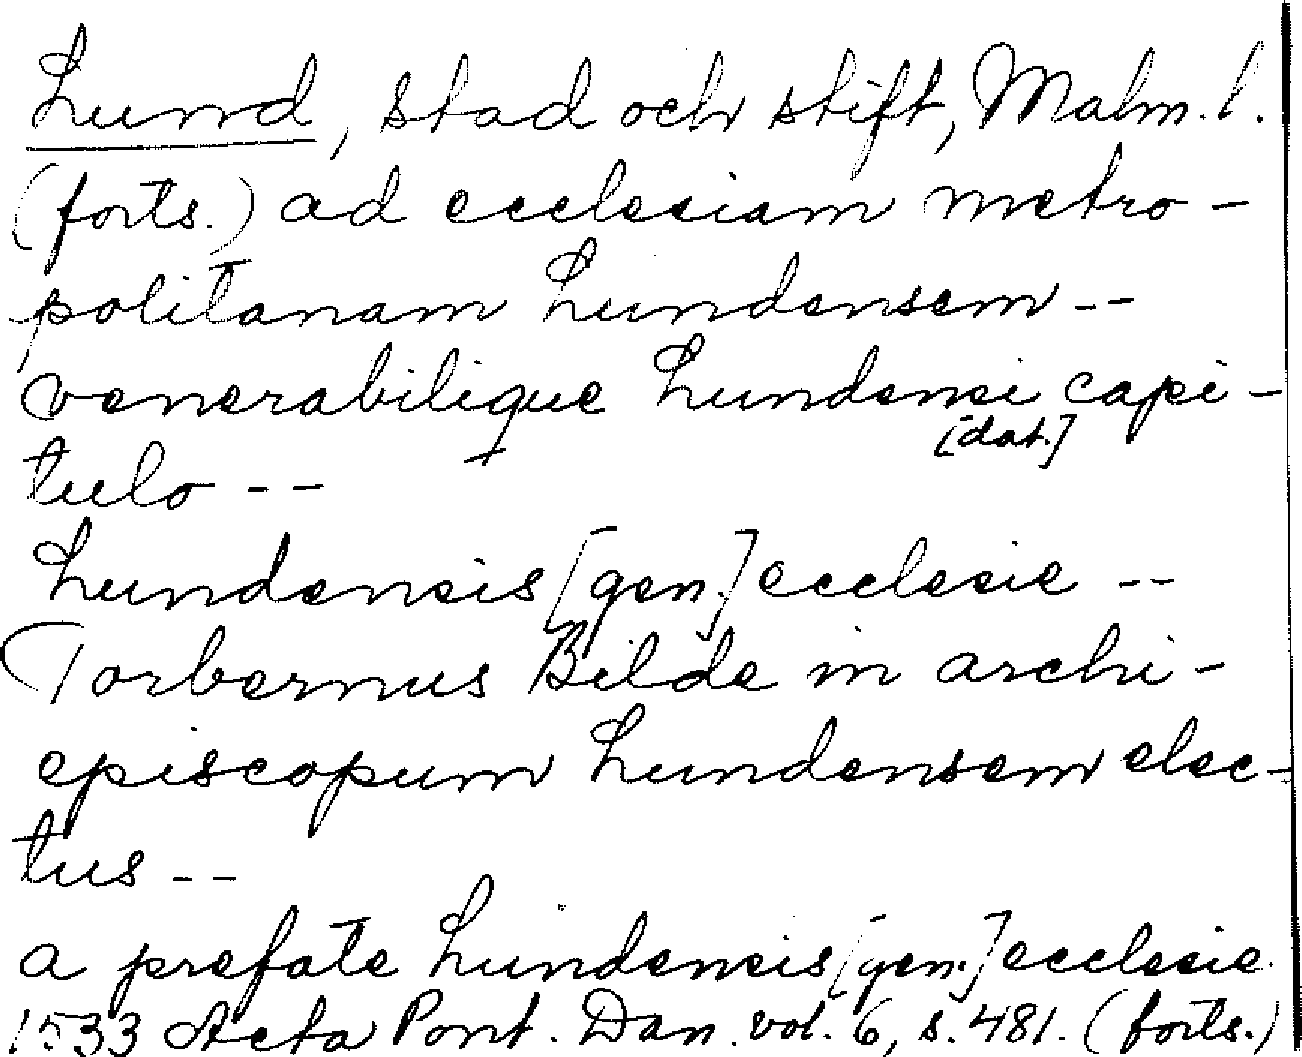 Lund, stad och stift, Malm. l.
(forts.) ad ecclesiam metro-
politanam Lundensem --
venerabilique Lundensi capi-
[dat.]
tulo --
Lundensis [gen.] ecclesie --
Torbernus Bilde in archi-
episcopum Lundensem elec-
tus --
a prefate Lundensis [gen.] ecclesie
1533 Acta Pont. Dan. vol. 6, s. 481. (forts.)